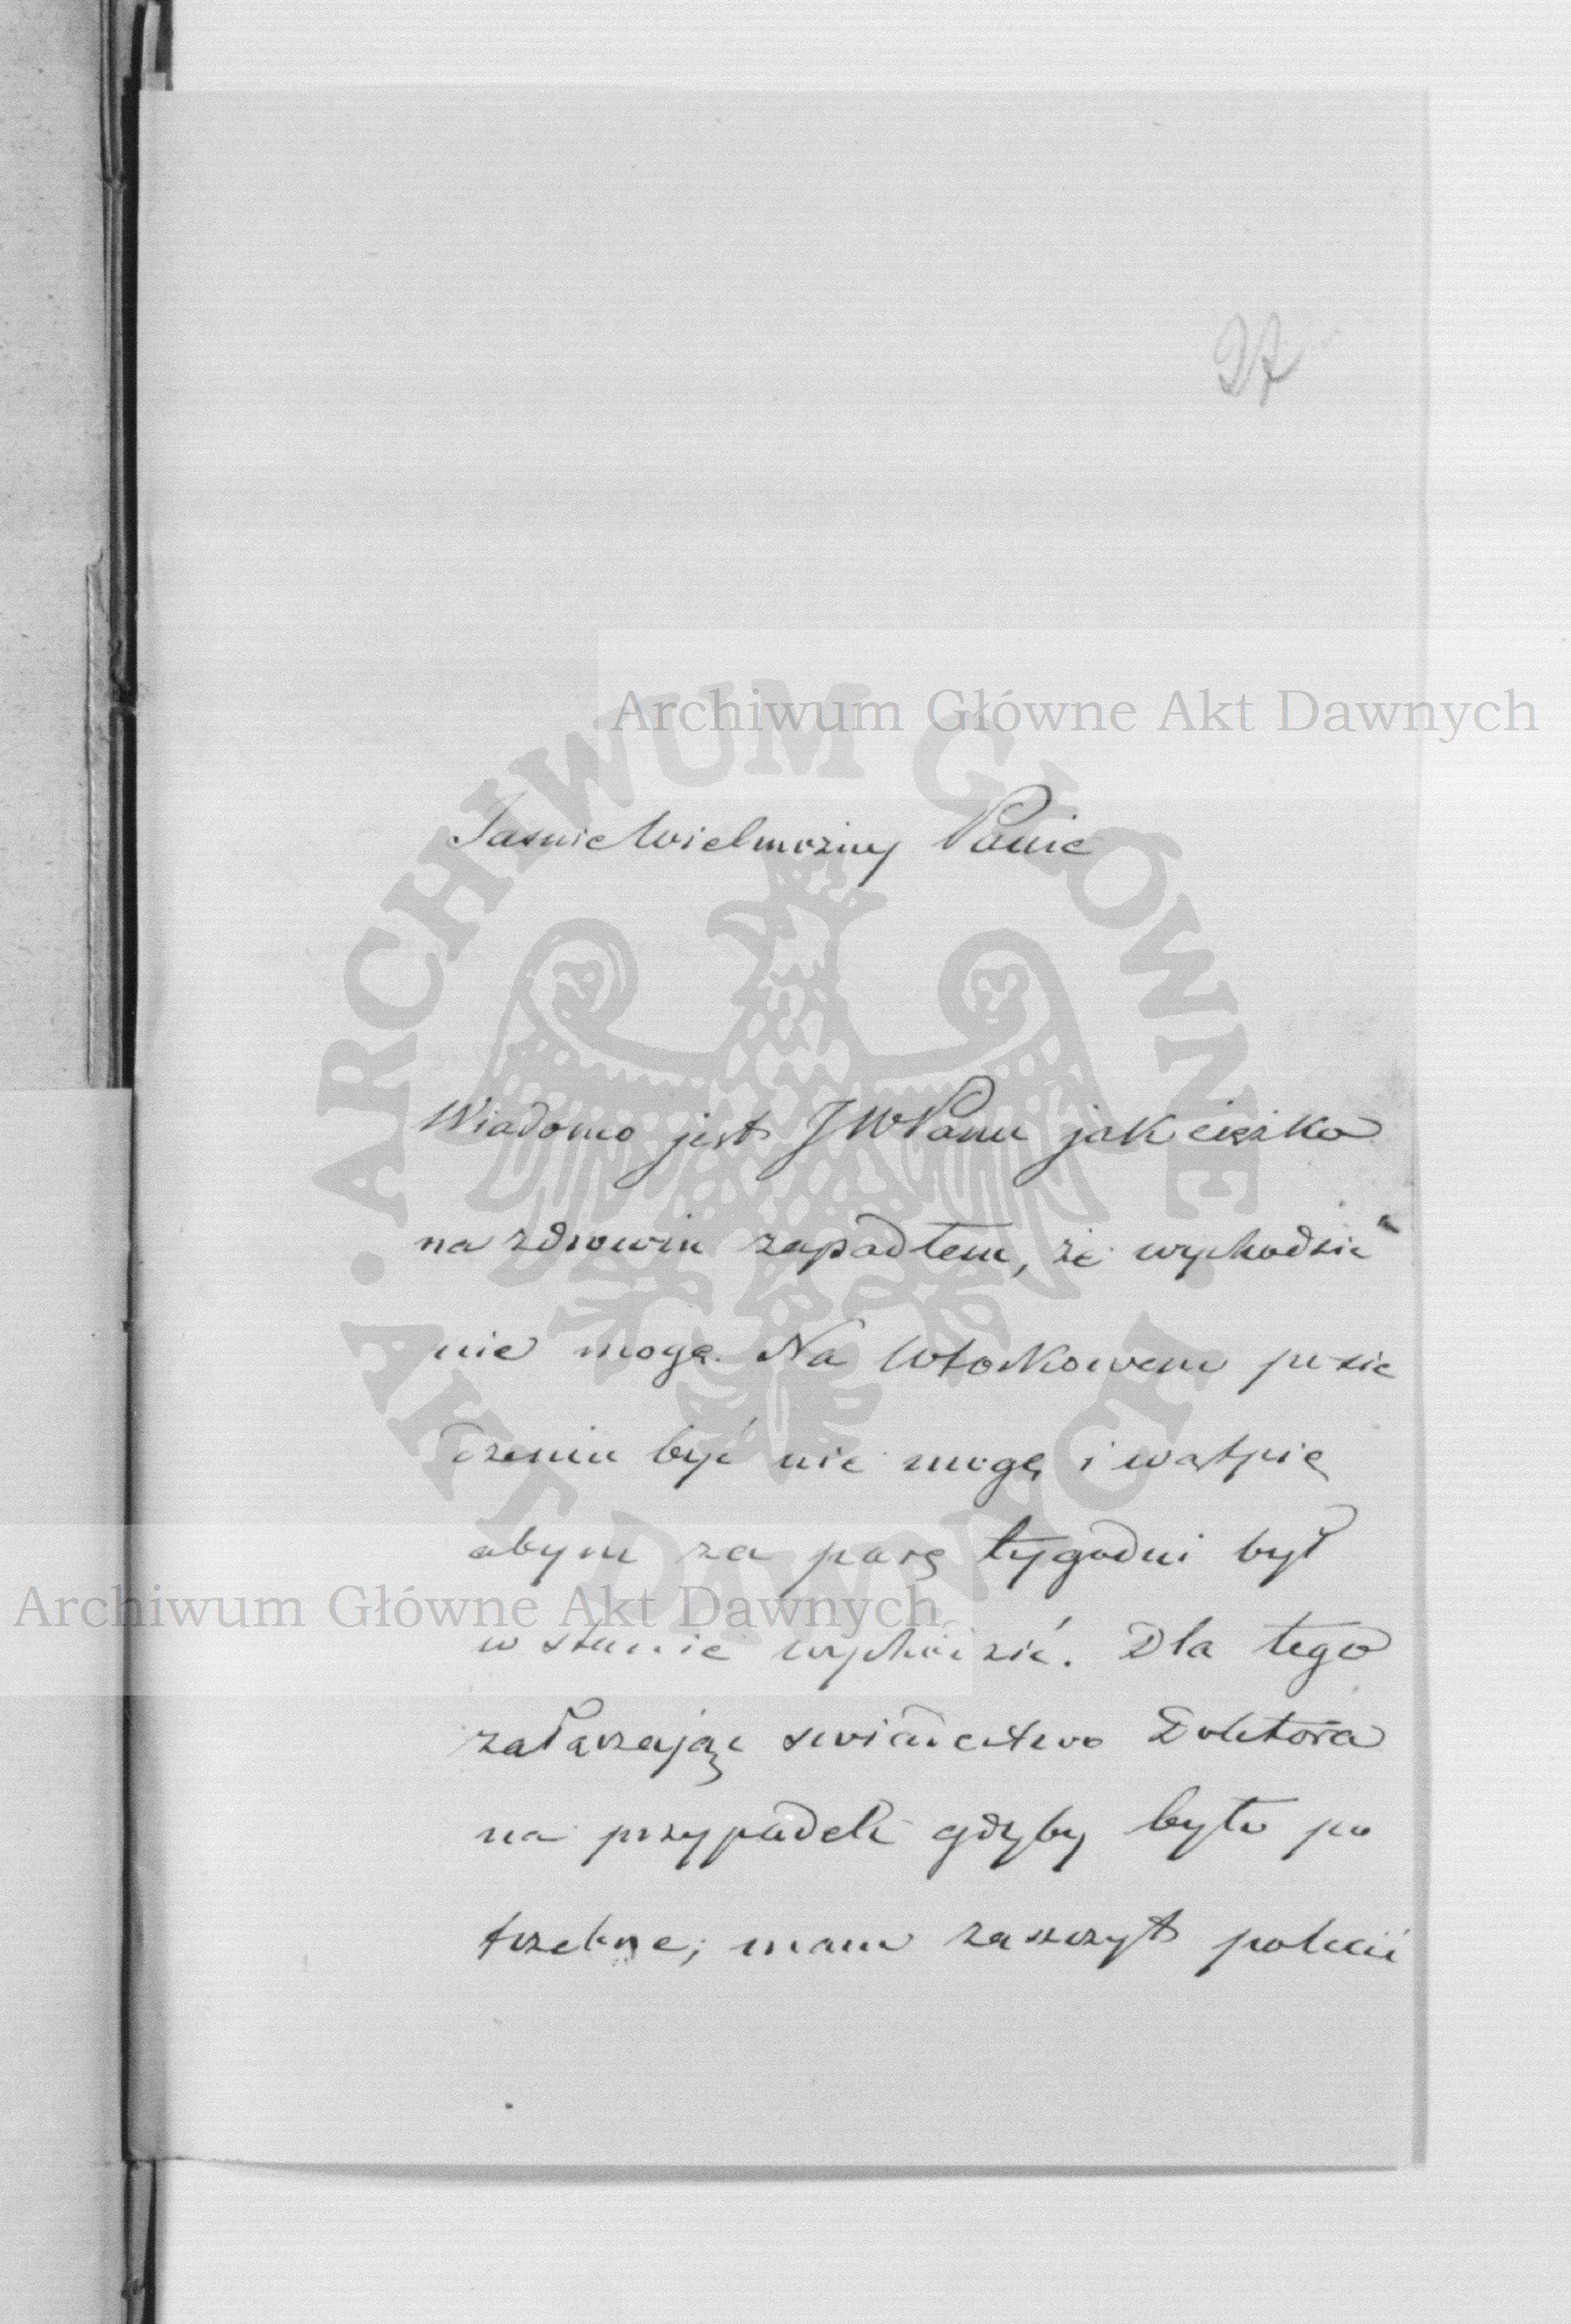 27
Archiwum Główne Akt Dawnych
ARCHIWUM GŁÓWNE AKT DAWNYCH
Jasnie Wielmożny Panie
Wiadomo jest JWPanu jak ciężko
na zdrowiu zapadłem, że wychodzić
nie mogę. Na Wtorkowem posie
dzeniu być nie mogę i wątpię
abym za parę tygodni był
Archiwum Główne Akt Dawnych
w stanie wychodzić. Dla tego
załączając świadectwo Doktora
na przypadek gdyby było po
trzebne; mam zaszczyt polecić